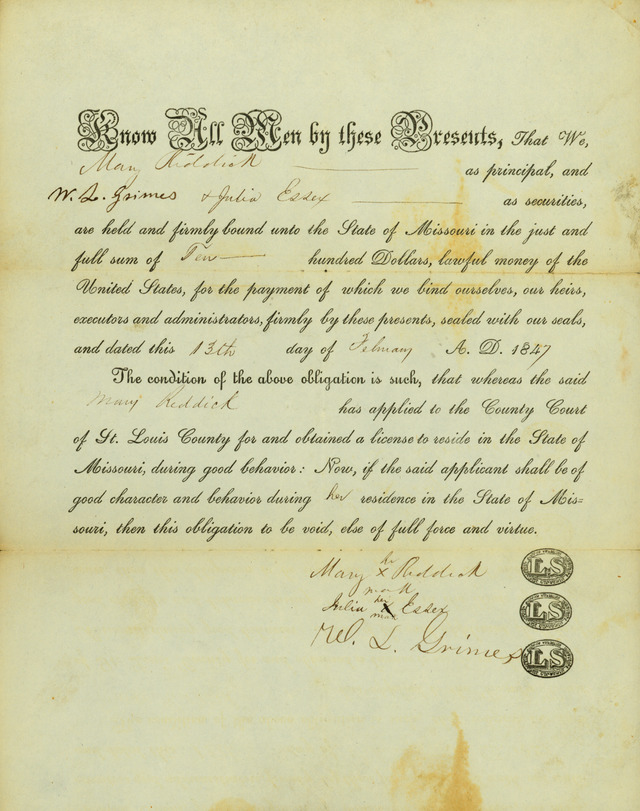 Know All Men by these Presents, That We,
Mary Reddick as principal, and
W. L. Grimes & Julia Essex as securities,
are held and firmly bound unto the State of Missouri in the just and
full sum of Ten hundred Dollars, lawful money of the
United States, for the payment of which we bind ourselves, our heirs,
executors and administrators, firmly by these presents, sealed with our seals,
and dated this 13th day of February A. D. 1847
The condition of the above obligation is such, that whereas the said
Mary Reddick has applied to the County Court
of St. Louis County for and obtained a license to reside in the State of
Missouri, during good behavior: Now, if the said applicant shall be of
good character and behavior during her residence in the State of Mis=
souri, then this obligation to be void, else of full force and virtue.
her
Mary x Reddick LS
mark
her
Julia x Essex LS
mark
W. L. Grimes LS